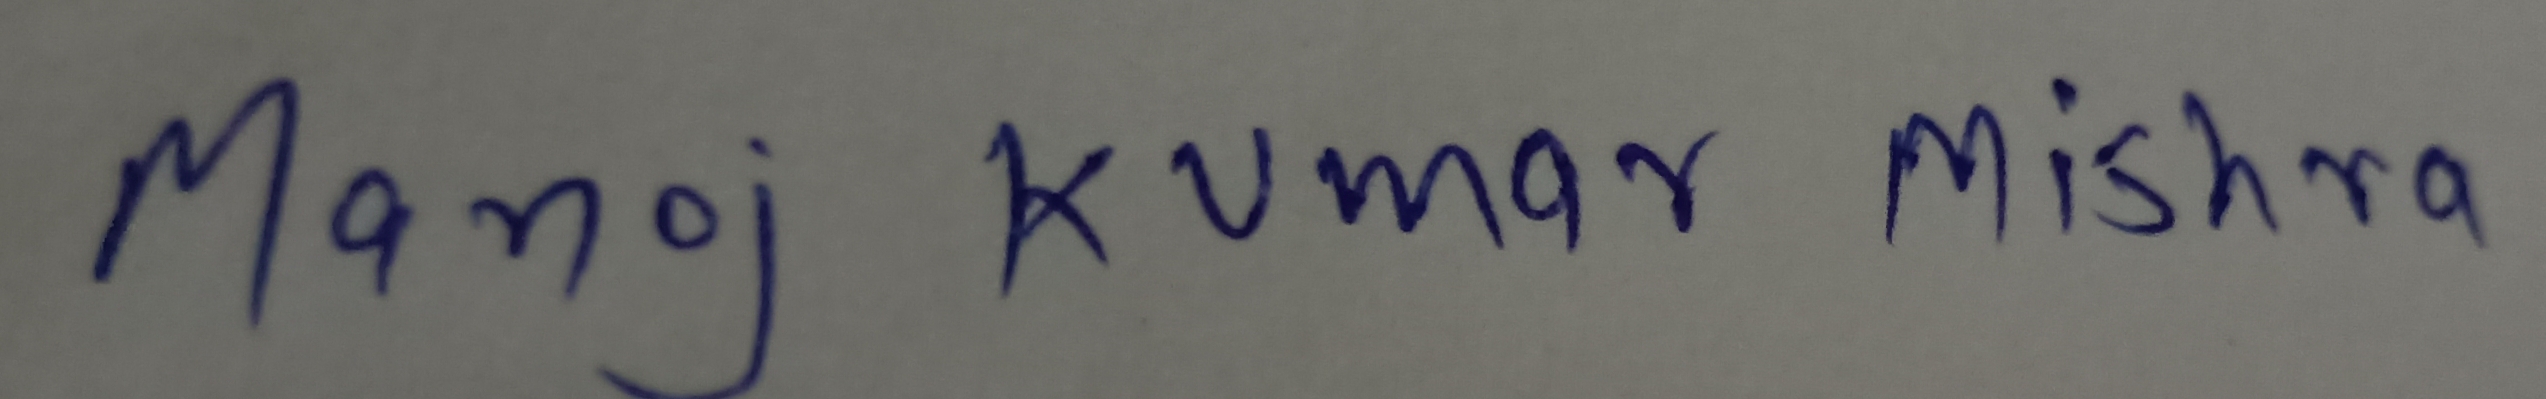 Manoj Kumar Mishra